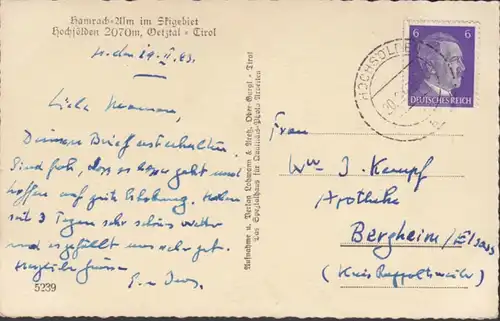 Hamrach-Alm im Skigebiet
Hochsölden 2070m, Oetztal - Tirol
den 19. II. 43.
Liebe
Deinen Brief erhalten.
Sind froh, dass es geht und
hoffen auf gute Erholung. Haben
seit 3 Tagen sehr schönes Wetter
und es gefällt uns sehr gut.
Herzliche Grüsse
5239
Aufnahme u. Verlag Lohmann & Ober-Gurgl - Tirol
Das Spezialhaus für Arbeiten
6 6
DEUTSCHES REICH
HOCHSÖLDEN
Frau
Ww J. Kempf
Apotheke
Bergheim/Elsass
(Kreis Rappoltsweiler)